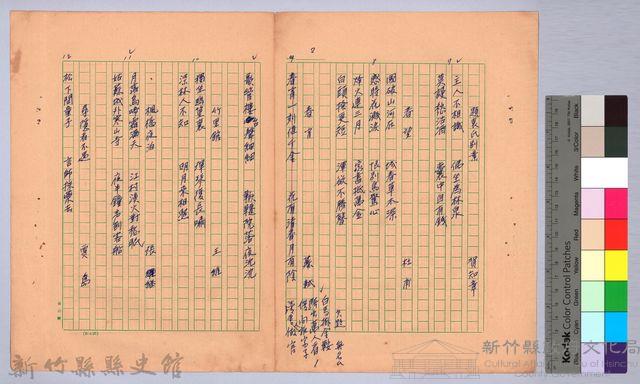 題袁氏別業　賀知章
主人不相識　偶坐為林泉
莫謾愁沽酒　囊中自有錢
春望　杜甫
國破山河在　城春草木深
感時花濺淚　恨別鳥驚心
烽火連三月　家書抵萬金
白頭搔更短　渾欲不勝簪
春宵　蘇軾
春宵一刻值千金　花有清香月有陰
歌管樓臺聲細細　鞦韆院落夜沉沉
竹里館　王維
獨坐幽篁裏　彈琴復長嘯
深林人不知　明月來相照
楓橋夜泊　張繼
月落烏啼霜滿天　江村漁火對愁眠
姑蘇城外寒山寺　夜半鐘聲到客船
尋隱者不遇　賈島
松下問童子　言師採藥去
新竹縣縣史館
Kodak Color Control Patches
Black
3/Color
White
Magenta
Red
Yellow
Green
Cyan
Blue